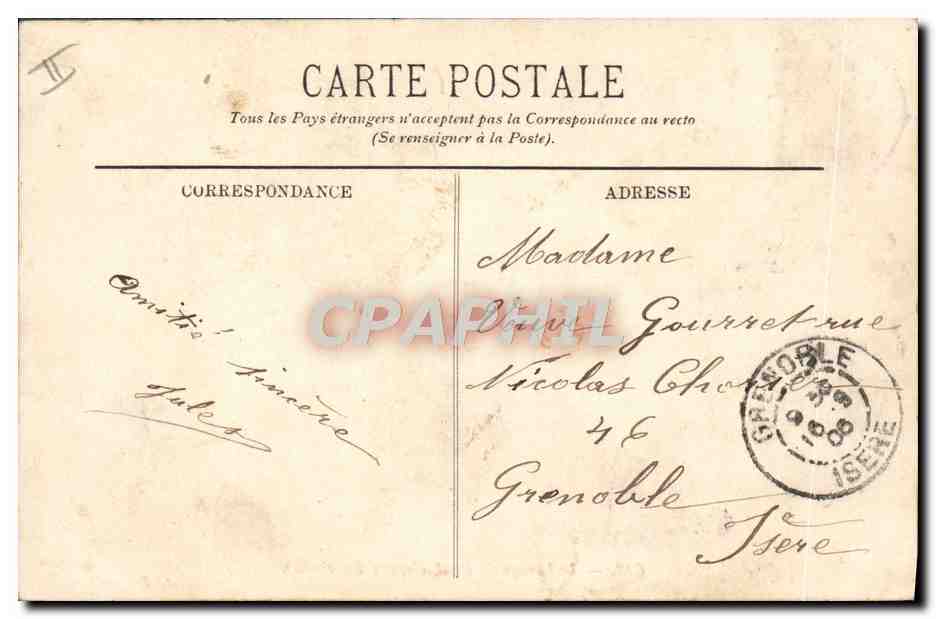 CARTE POSTALE
Tous les Pays étrangers n'acceptent pas la Correspondance au recto
(Se renseigner à la Poste).
CORRESPONDANCE
Amitié sincère
Jules
ADRESSE
Madame
Veuve Gourret rue
Nicolas Chorier
46
Grenoble
Isère
GRENOBLE
ISERE
CPAPHIL